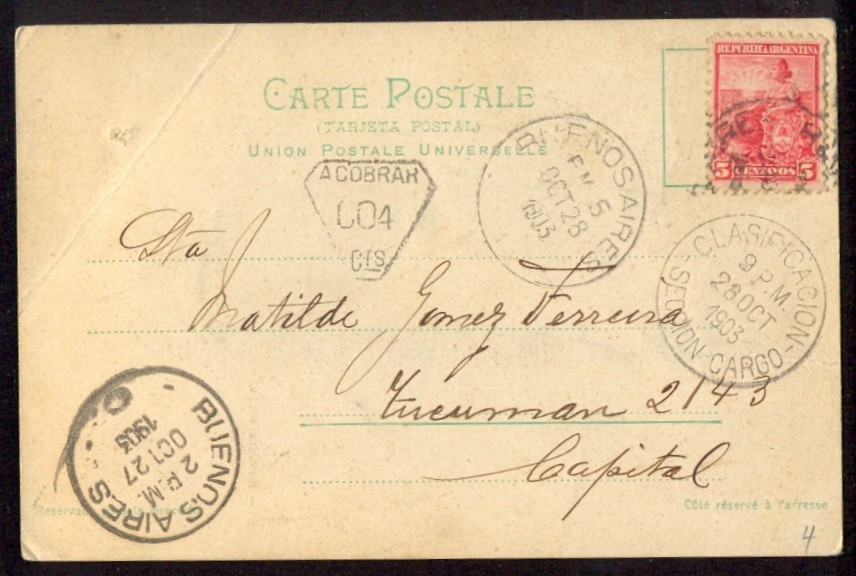 REPUBLICA ARGENTINA
5 CENTAVOS 5
CARTE POSTALE
(TARJETA POSTAL)
UNION POSTALE UNIVERSELLE
A COBRAR
004
CTS
BUENOS AIRES
P.M 5
OCT 28
1903
CLASIFICACION
9 P.M
28 OCT
1903
SECCION CARGO
Sta
Matilde Gomez Ferreira
Tucuman 2143
Capital
BUENOS AIRES
2 P.M.
OCT 27
1903
Côté réservé à l'adresse
4